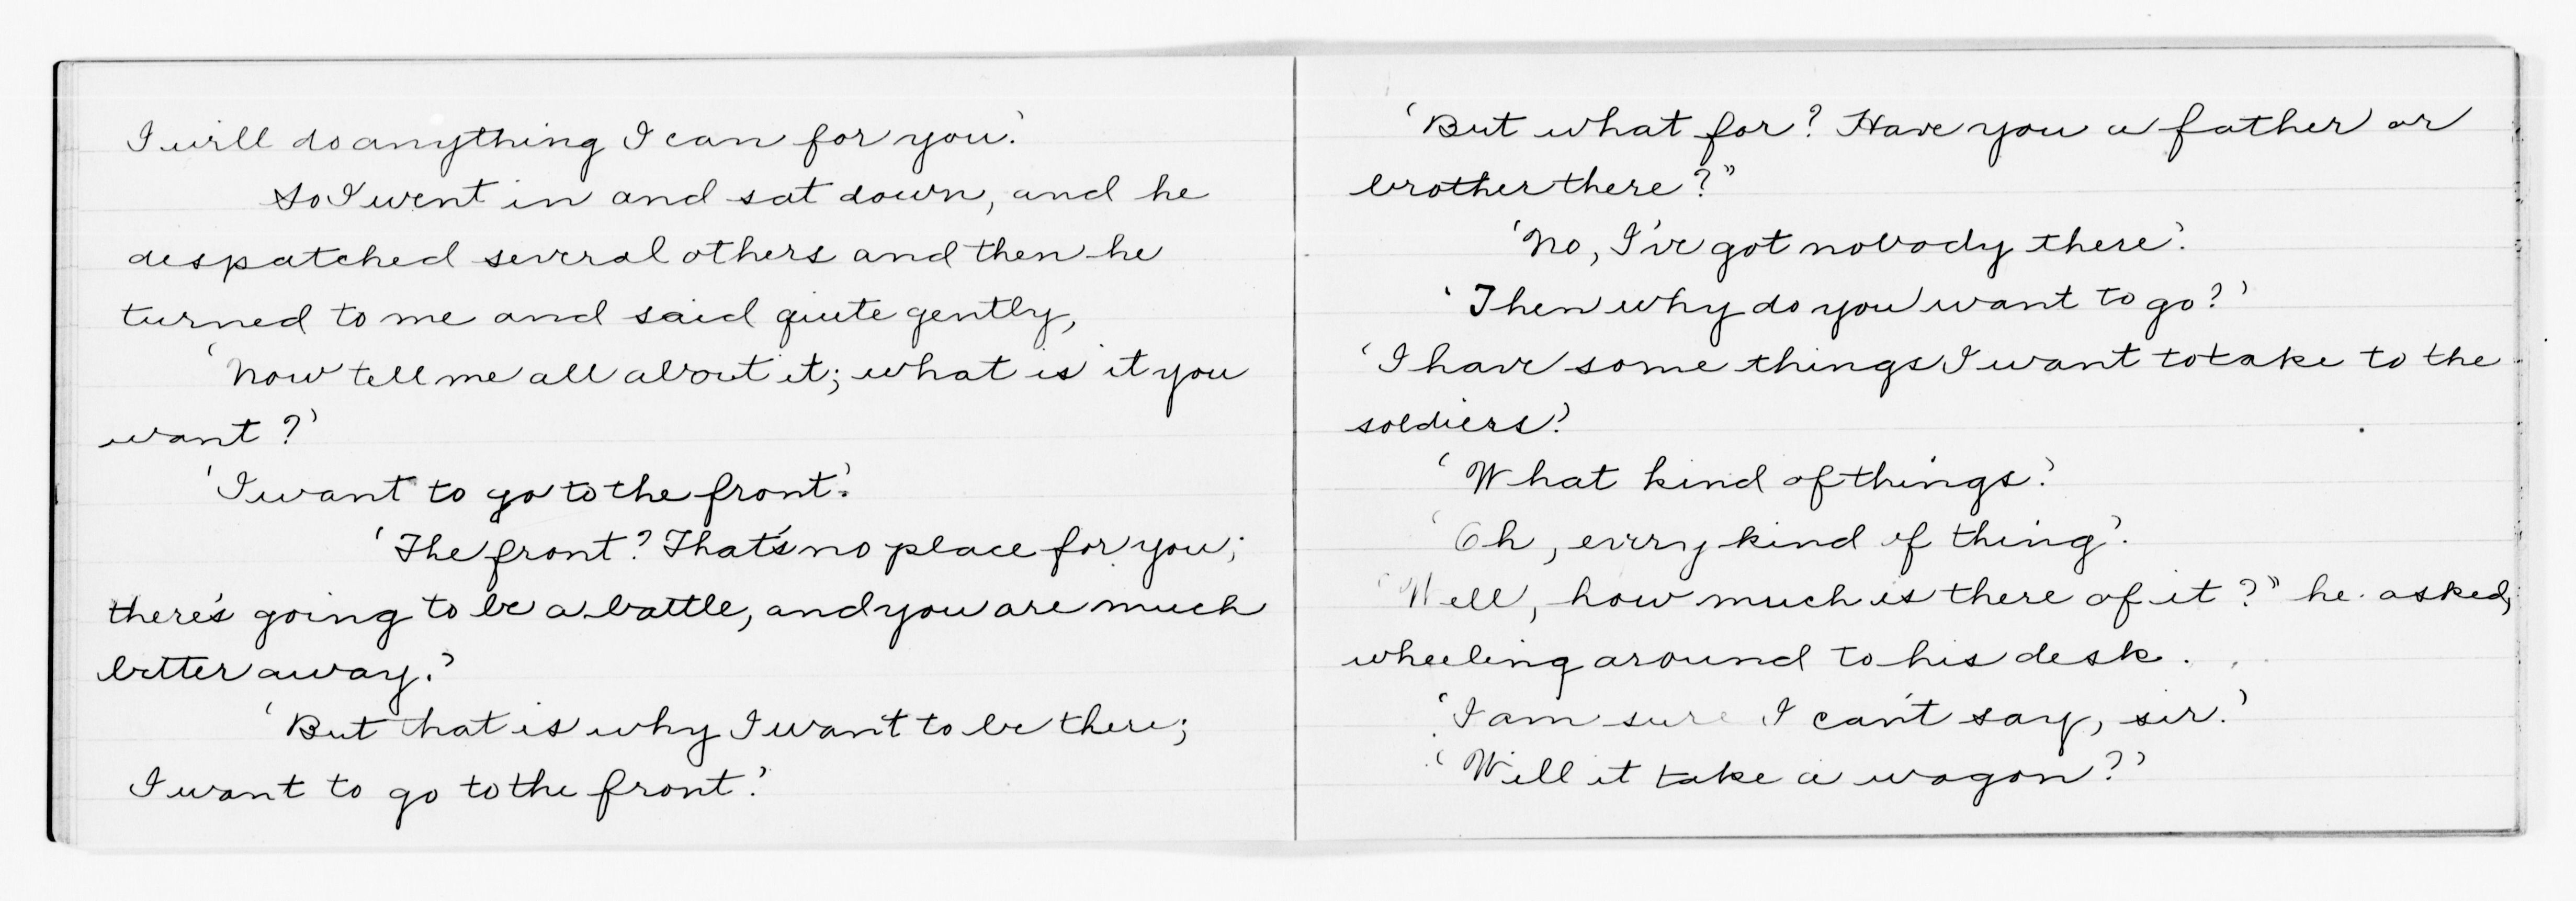 I will do anything I can for you.'
So I went in and sat down, and he
despatched several others and then he
turned to me and said quite gently,
'Now tell me all about it; what is it you
want?'
'I want to go to the front.'
'The front? That's no place for you;
there's going to be a battle, and you are much
better away.'
'But that is why I want to be there;
I want to go to the front.'
'But what for? Have you a father or
brother there?"
'No, I've got nobody there.'
'Then why do you want to go?'
'I have some things I want to take to the
soldiers.'
'What kind of things.'
'Oh, every kind of thing.'
"Well, how much is there of it?" he asked,
wheeling around to his desk.
'I am sure I can't say, sir.'
'Will it take a wagon?'